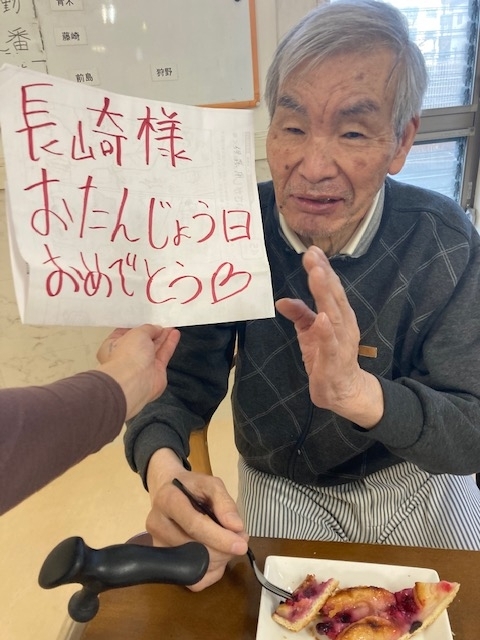 青木
藤崎
前島
狩野
番
長崎様
おたんじょう日
おめでとう♡